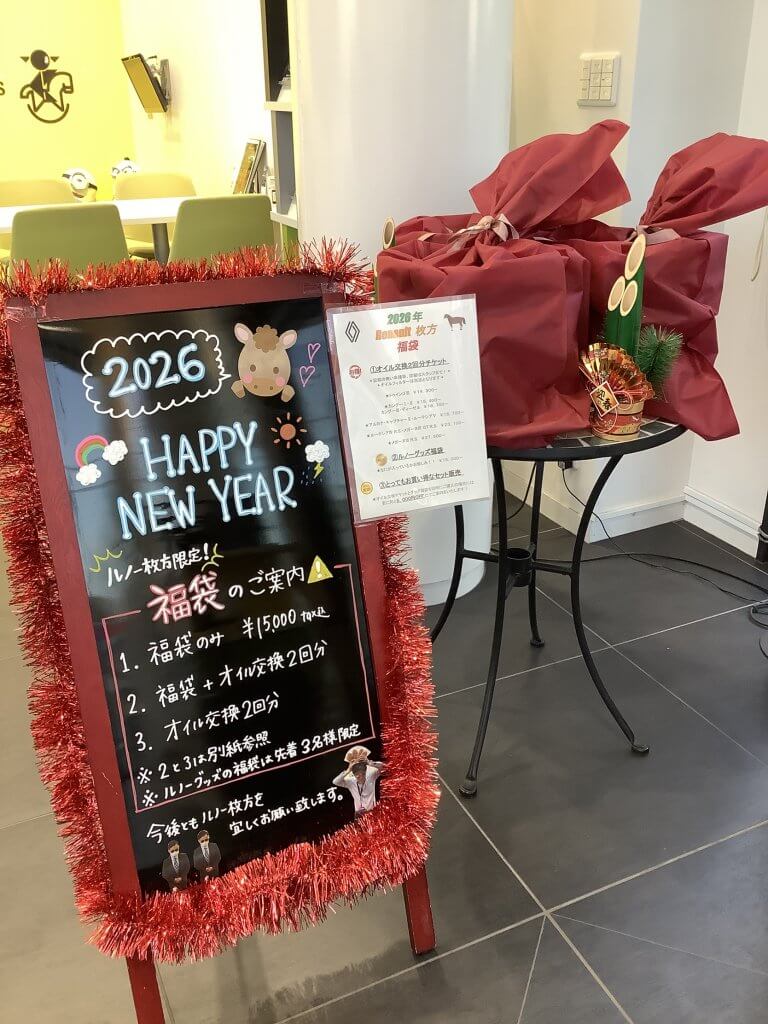 2026
HAPPY
NEW YEAR
ルノー枚方限定!
福袋のご案内
1. 福袋のみ ¥15,000 tax込
2. 福袋+オイル交換2回分
3. オイル交換2回分
※2と3は別紙参照
※ルノーグッズの福袋は先着3名様限定
今後ともルノー枚方を
宜しくお願い致します。
2026年
Renault 枚方
福袋
①オイル交換2回分チケット
②ルノーグッズ福袋
③とってもお買い得なセット販売